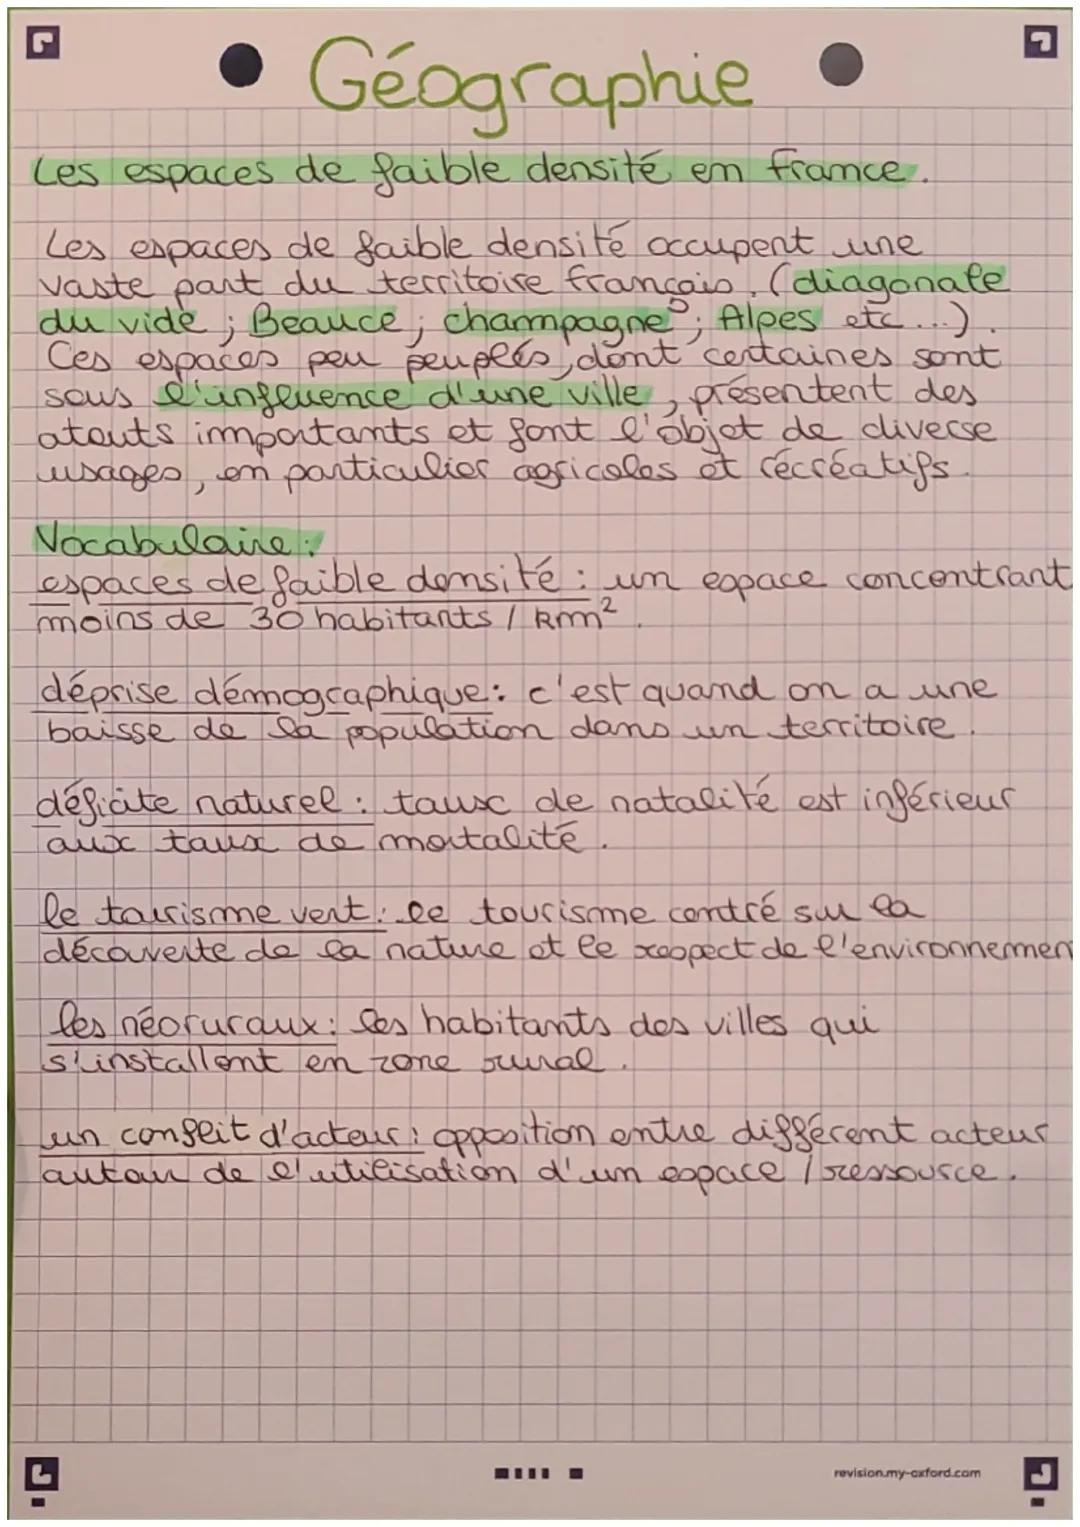 Géographie
Les espaces de faible densité en france.
Les espaces de faible densité occupent une
vaste part du territoire français. (diagonale
du vide ; Beauce ; champagne ; Alpes etc...).
Ces espaces peu peuplés, dont certaines sont
sous l'influence d'une ville, présentent des
atouts importants et font l'objet de diverse
usages, en particulier agricoles et récréatifs.
Vocabulaire :
espaces de faible densité : un espace concentrant
moins de 30 habitants / km².
déprise démographique : c'est quand on a une
baisse de la population dans un territoire.
déficite naturel : taux de natalité est inférieur
aux taux de mortalité.
le tourisme vert : le tourisme centré sur la
découverte de la nature et le respect de l'environnemen
les néoruraux : les habitants des villes qui
s'installent en zone rural.
un conflit d'acteur : opposition entre différent acteur
autour de l'utilisation d'un espace / ressource.
revision.my-oxford.com